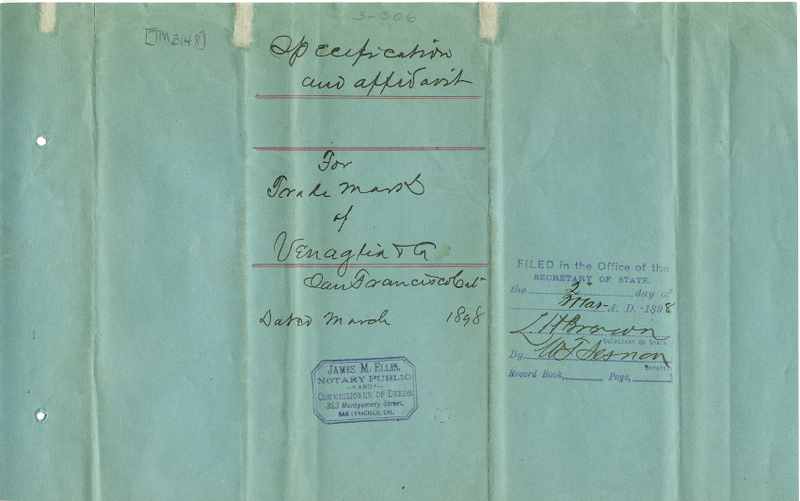 3-306
[TM3148]
Specification
and affidavit
For
Trade Mark
of
Venaglia & Co
San Francisco Cal
Dated March 1898
JAMES M. ELLIS,
NOTARY PUBLIC
AND
COMMISSIONER OF DEEDS,
323 Montgomery Street,
SAN FRANCISCO, CAL.
FILED in the Office of the
SECRETARY OF STATE,
the 2" day of
Mar A. D. 1898
L H Brown
SECRETARY OF STATE
By W T Sesnon
DEPUTY.
Record Book, Page,